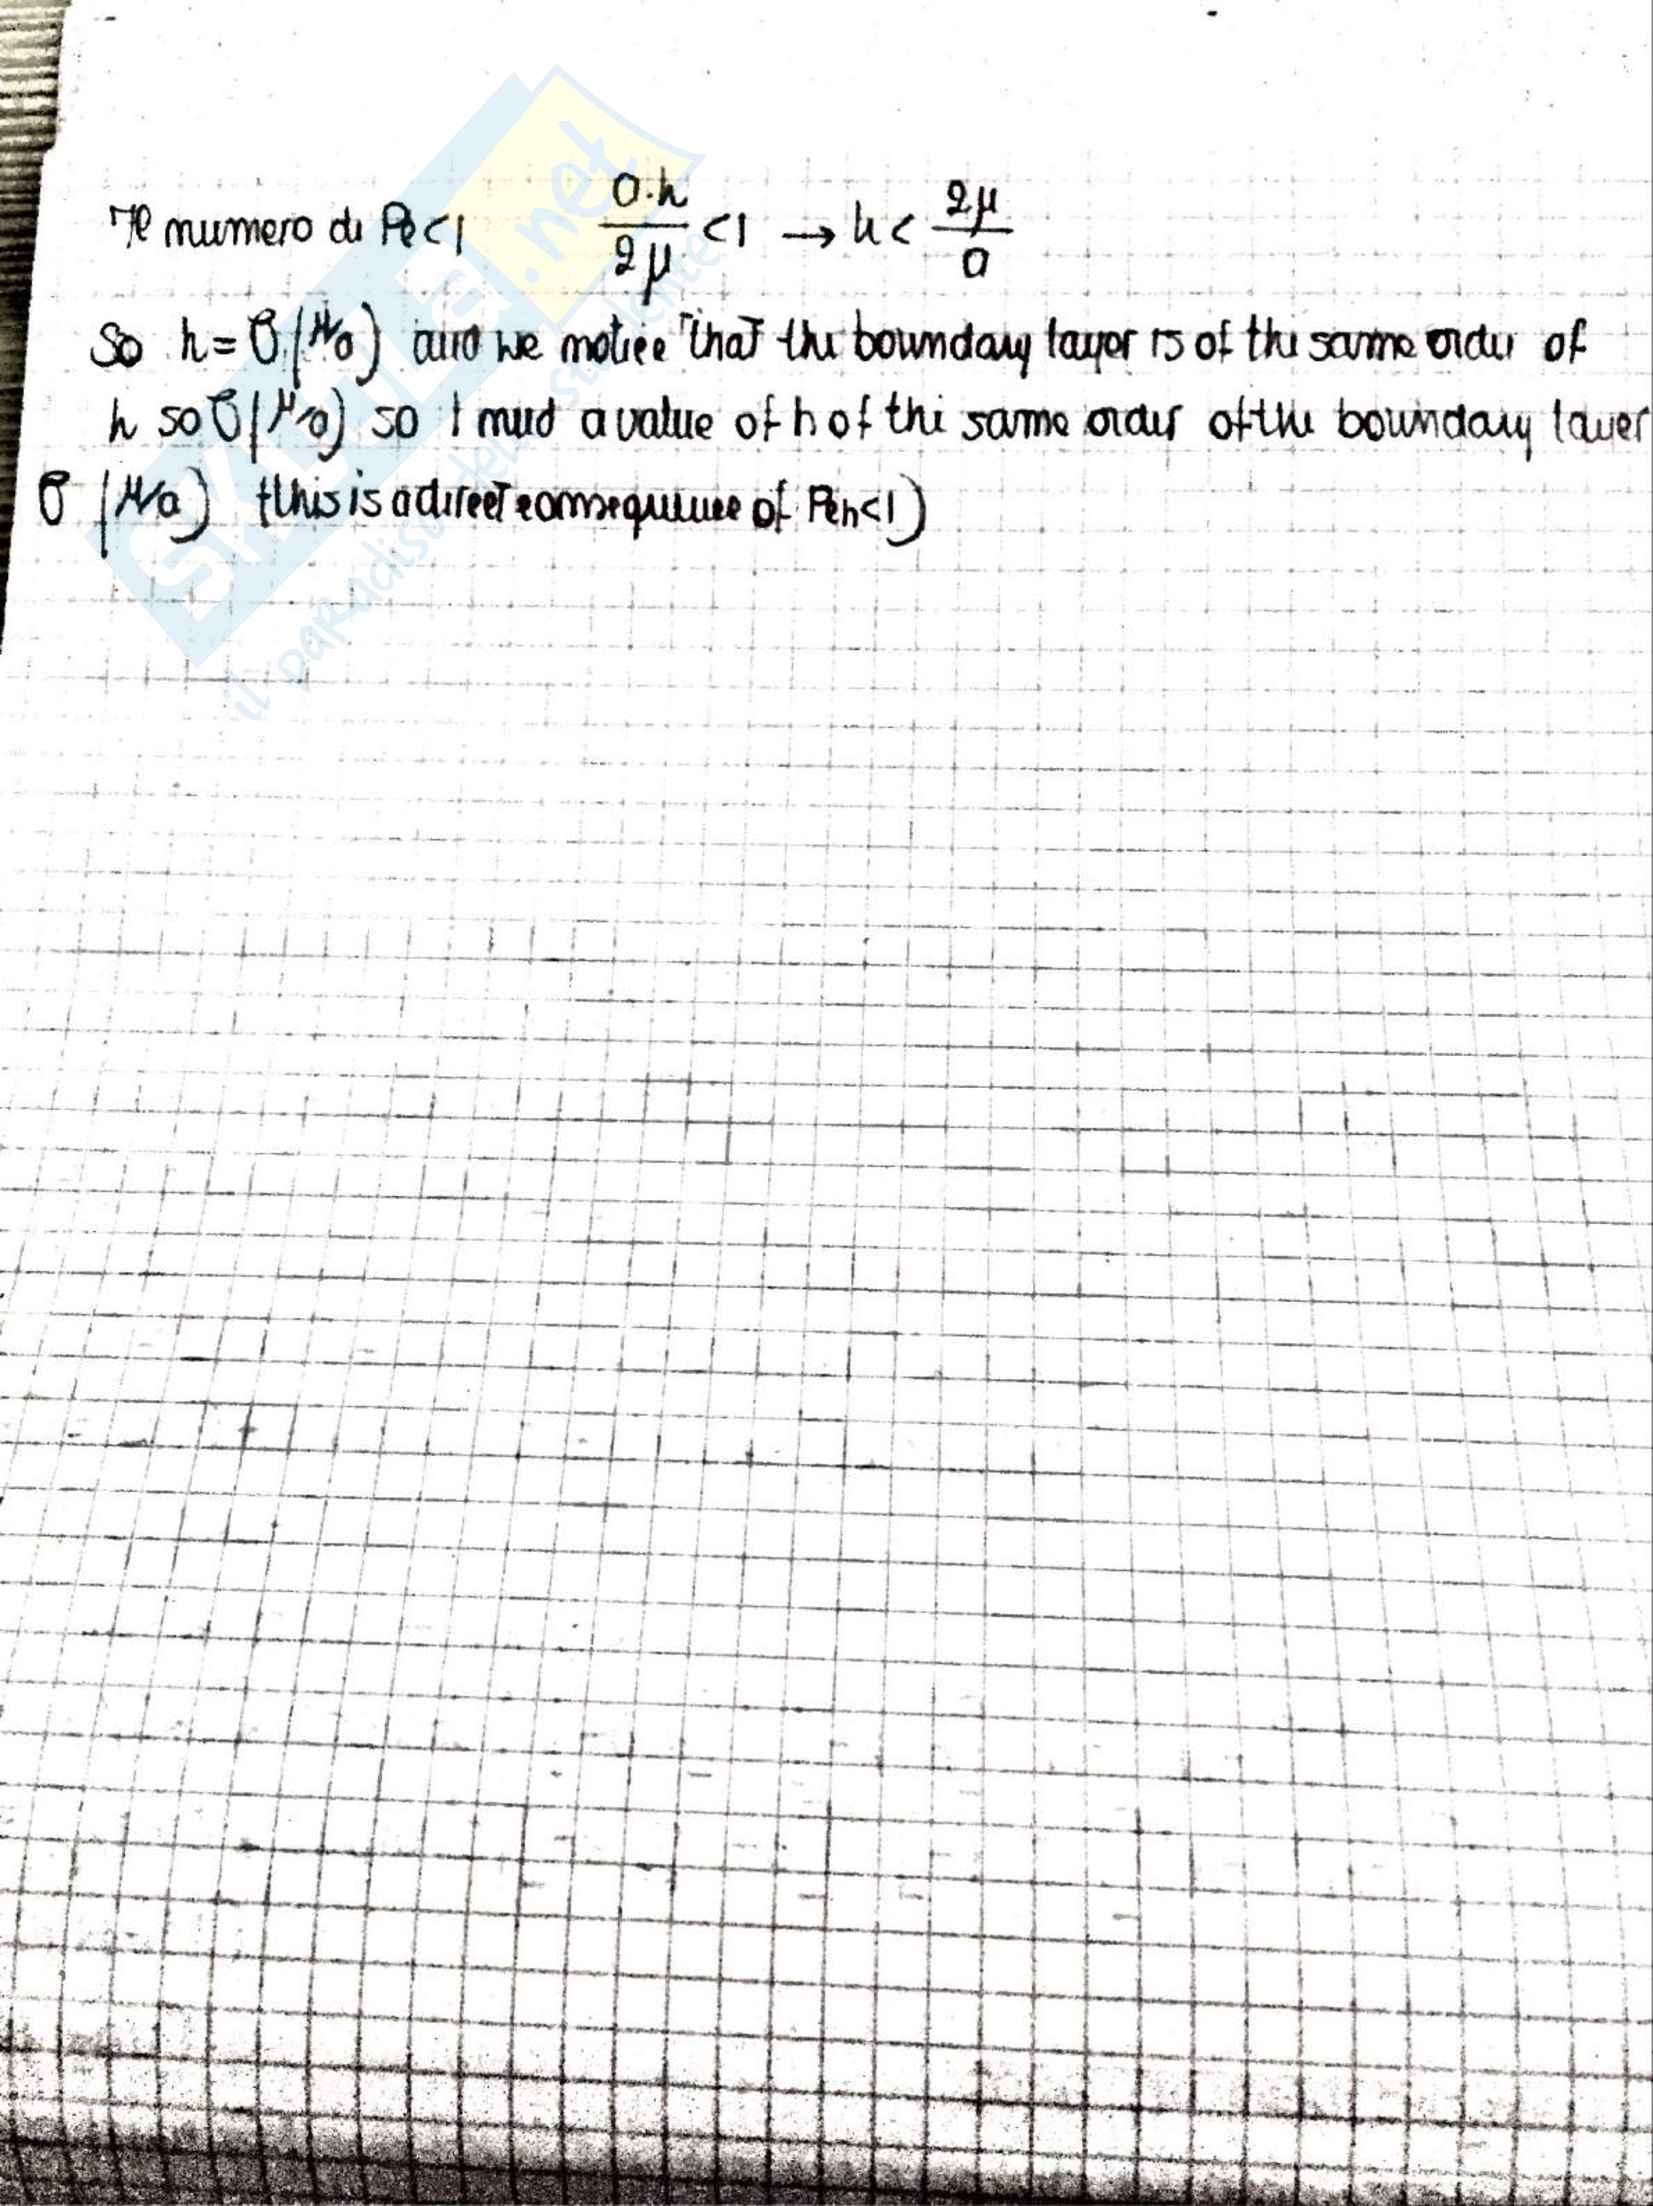 Il numero di Pe<1 a·h/2μ <1 → h< 2μ/a
So h = O(μ/a) and we notice that the boundary layer is of the same order of
h so O(μ/a) so I need a value of h of the same order of the boundary layer
O(μ/a) (this is a direct consequence of Peh<1)
SKUOLA.net
il paradiso dello studente